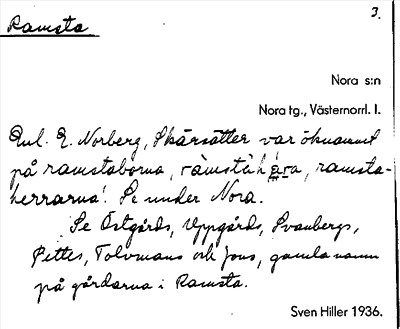 3.
Ramsta
Nora s:n
Nora tg., Västernorrl. l.
Enl. E. Norberg, Skärsätter var öknamnet
på ramstaborna, ramsta- , ramsta-
herrarna'. Se under Nora.
Se Östgårds, Uppgårds, Svanbergs,
Pettes, Tolvmans och Jons, gamla namn
på gårdarna i Ramsta.
Sven Hiller 1936.